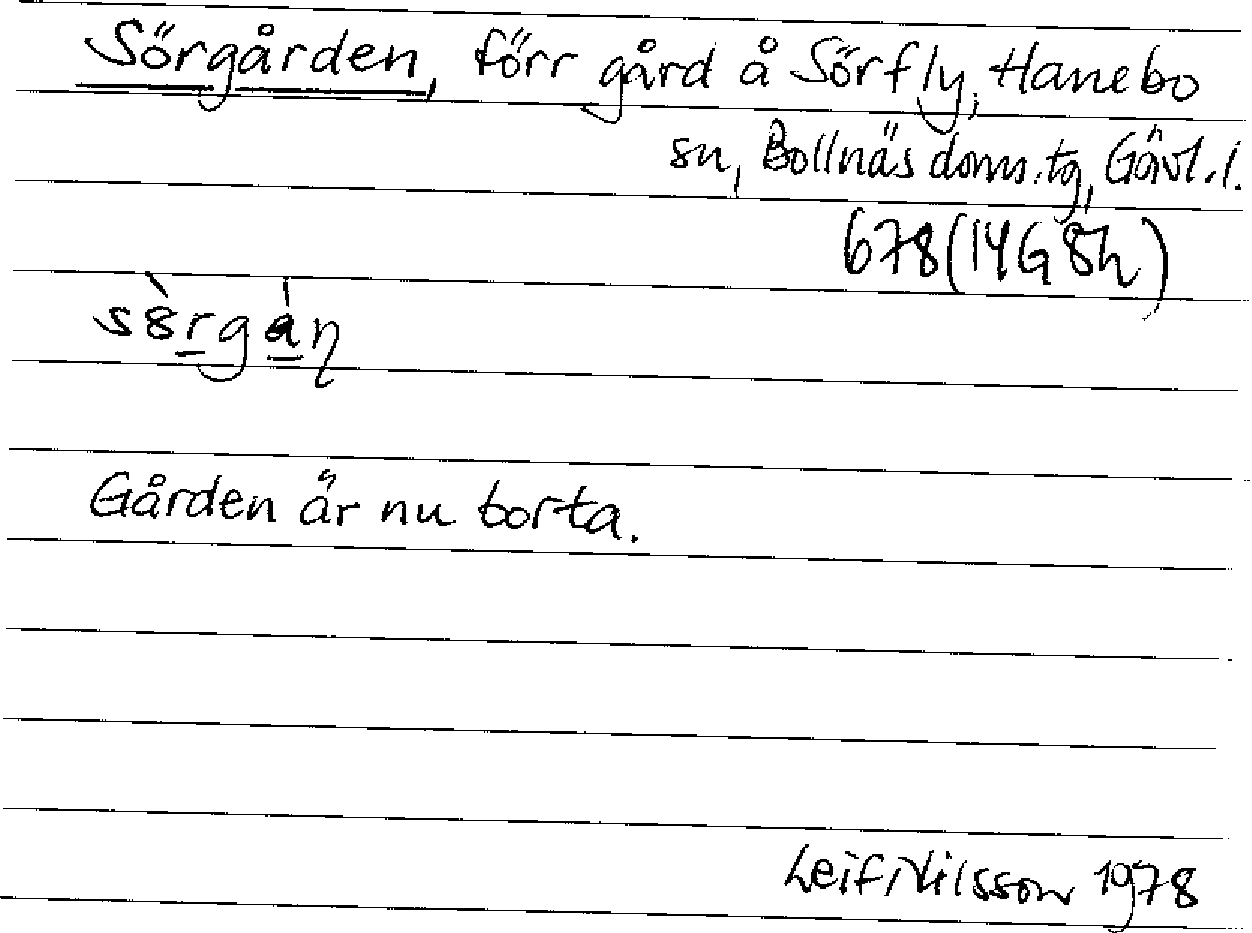 Sörgården, förr gård å Sörfly, Hanebo
sn, Bollnäs doms.tg, Gävl.l.
678 (14G 8h)
Gården är nu borta.
Leif Nilsson 1978